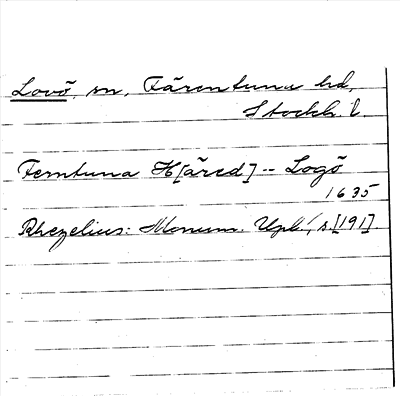 Lovö, sn, Färentuna hd,
Stockh. l.
Ferntuna H[äred] -- Logö
1635
Rhezelius: Monum. Upl., s. [191].